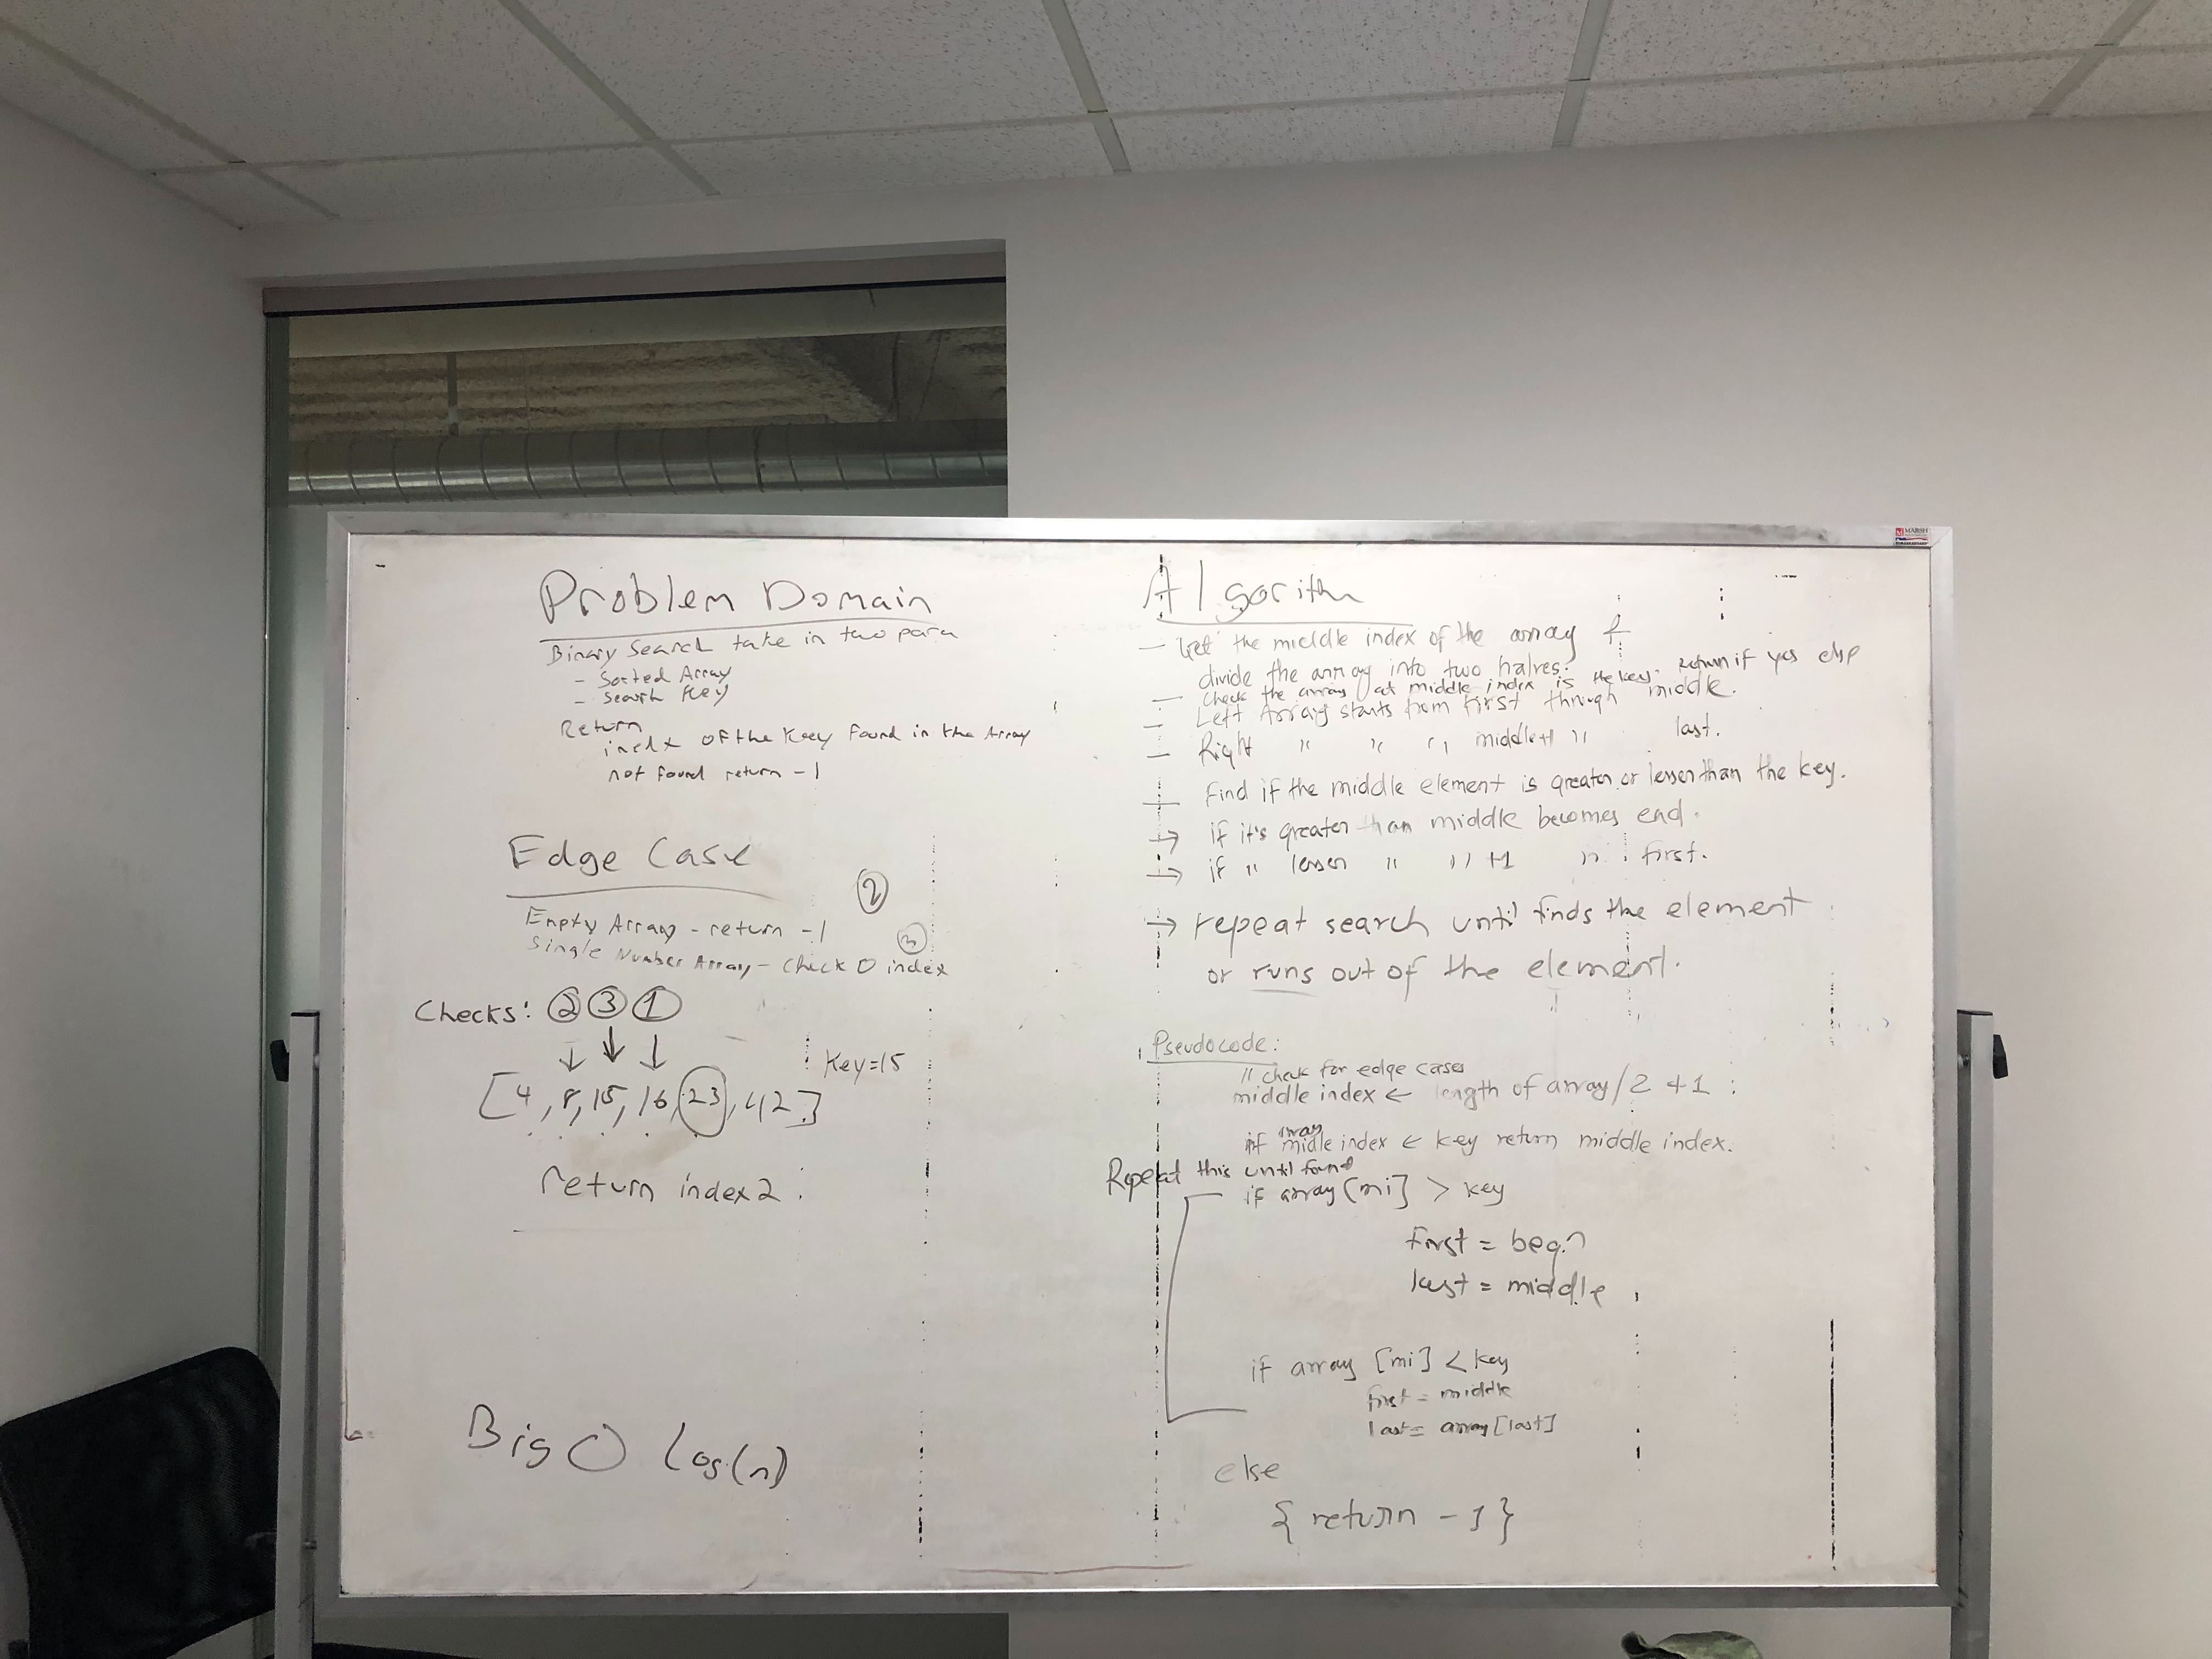 Problem Domain
Binary Search take in two para
- Sorted Array
- Search Key
Return
inedx of the key found in the Array
not found return -1
Edge Case
2
Empty Array - return -1
3
Single Number Array - check 0 index
Checks: 2 3 1
Key=15
[4, 8, 15, 16, 23, 42]
return index 2.
Big O Log(n)
MARSH
Algorithm
- Get the middle index of the array &
divide the array into two halves.
- check the array at middle index is the key. return if yes else
- Left Array starts from first through middle.
- Right " " " middle+1 " last.
- Find if the middle element is greater or lesser than the key.
→ if it's greater than middle becomes end.
→ if " lesser " " +1 " first.
→ repeat search until finds the element
or runs out of the element.
Pseudocode:
// check for edge cases
middle index ← length of array/2 +1
if array midle index ← key return middle index.
Repeat this until found
if array [mi] > key
first = begn
last = middle
if array [mi] < key
first = middle
last = array [last]
else
{ return -1 }